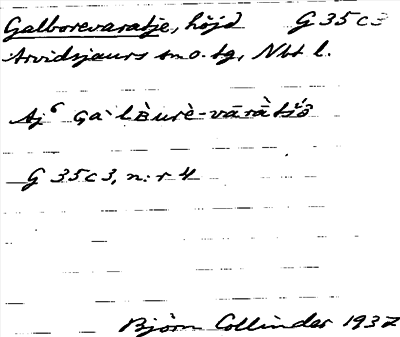 Galborevaratje, höjd G 35 c 3
Arvidsjaurs sn o. tg, Nbt l.
Aj⁶ gàlBurè-vāràtšŏ
G 35 c 3, n:r 4
Björn Collinder 1937